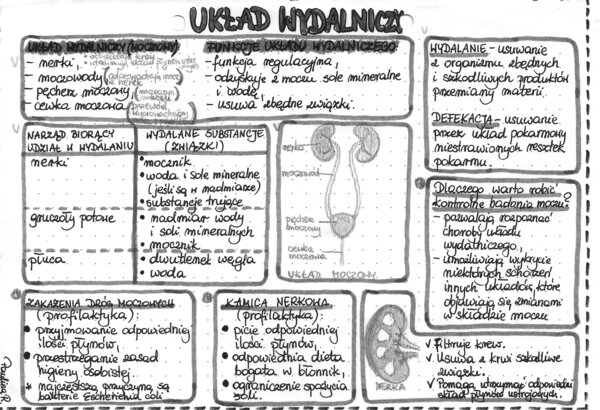 UKŁAD WYDALNICZY
UKŁAD WYDALNICZY (MOCZOWY)
- nerki,
- moczowody (odprowadzają mocz z nerek)
- pęcherz moczowy, (magazyn moczu)
- cewka moczowa (przewód wyprowadzający)
FUNKCJE UKŁADU WYDALNICZEGO:
- funkcja regulacyjna,
- odzyskuje z moczu sole mineralne
i wodę,
- usuwa zbędne związki.
WYDALANIE - usuwanie
z organizmu zbędnych
i szkodliwych produktów
przemiany materii.
DEFEKACJA - usuwanie
przez układ pokarmowy
niestrawionych resztek
pokarmu.
NARZĄD BIORĄCY
UDZIAŁ W WYDALANIU
WYDALANE SUBSTANCJE
(ZWIĄZKI)
nerki
• mocznik
• woda i sole mineralne
(jeśli są w nadmiarze)
• substancje trujące
gruczoły potowe
• nadmiar wody
i soli mineralnych
• mocznik
płuca
• dwutlenek węgla
• woda
nerka
moczowód
pęcherz
moczowy
cewka
moczowa
UKŁAD MOCZOWY
Dlaczego warto robić
kontrolne badania moczu?
- pozwalają rozpoznać
choroby układu
wydalniczego,
- umożliwiają wykrycie
niektórych schorzeń
innych układów, które
objawiają się zmianami
w składzie moczu
ZAKAŻENIA DRÓG MOCZOWYCH
(profilaktyka):
• przyjmowanie odpowiedniej
ilości płynów,
• przestrzeganie zasad
higieny osobistej.
* najczęstszą przyczyną są
bakterie Escherichia coli
KAMICA NERKOWA
(profilaktyka):
• picie odpowiedniej
ilości płynów,
• odpowiednia dieta
bogata w błonnik,
• ograniczenie spożycia
soli.
NERKA
✓ Filtruje krew.
✓ Usuwa z krwi szkodliwe
związki.
✓ Pomaga utrzymać odpowiedni
skład płynów ustrojowych.
Paulina R.